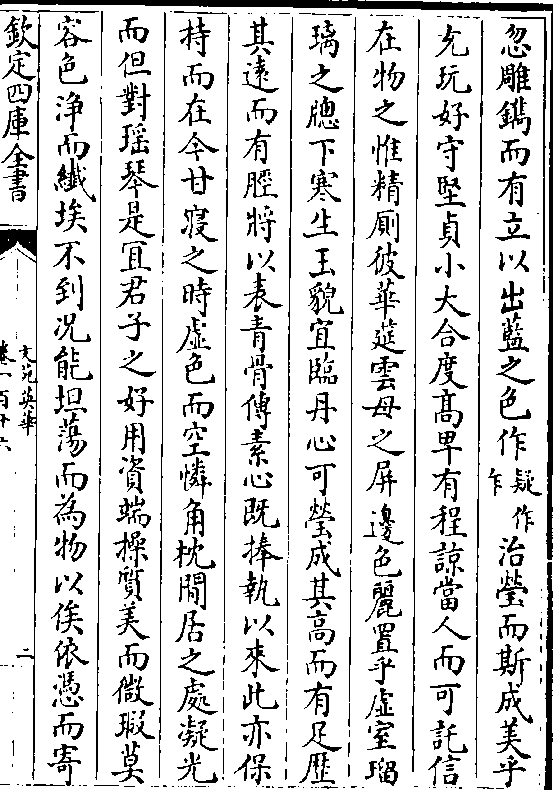 忽雕鐫而有立以出藍之色作疑作乍治瑩而斯成美乎
允玩好守堅貞小大合度髙卑有程諒當人而可託信
在物之惟精厠彼華筵雲母之屏邊色麗置乎虛室瑠
璃之牕下寒生玉貌宜臨丹心可瑩成其高而有足歴
其逺而有脛將以表青骨傳素心既捧執以來此亦保
持而在今甘寢之時虛色而空憐角枕閒居之處凝光
而但對瑶琴是宜君子之好用資端操質美而㣲瑕莫
容色浄而纎埃不到况能坦蕩而為物以俟依憑而寄
欽定四庫全書
文苑英華
卷一百十六
二